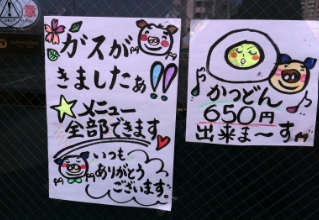 ガスが
きましたぁ!!
メニュー
全部できます
いつも
ありがとう
ございます
かつどん
650円
出来ま〜す